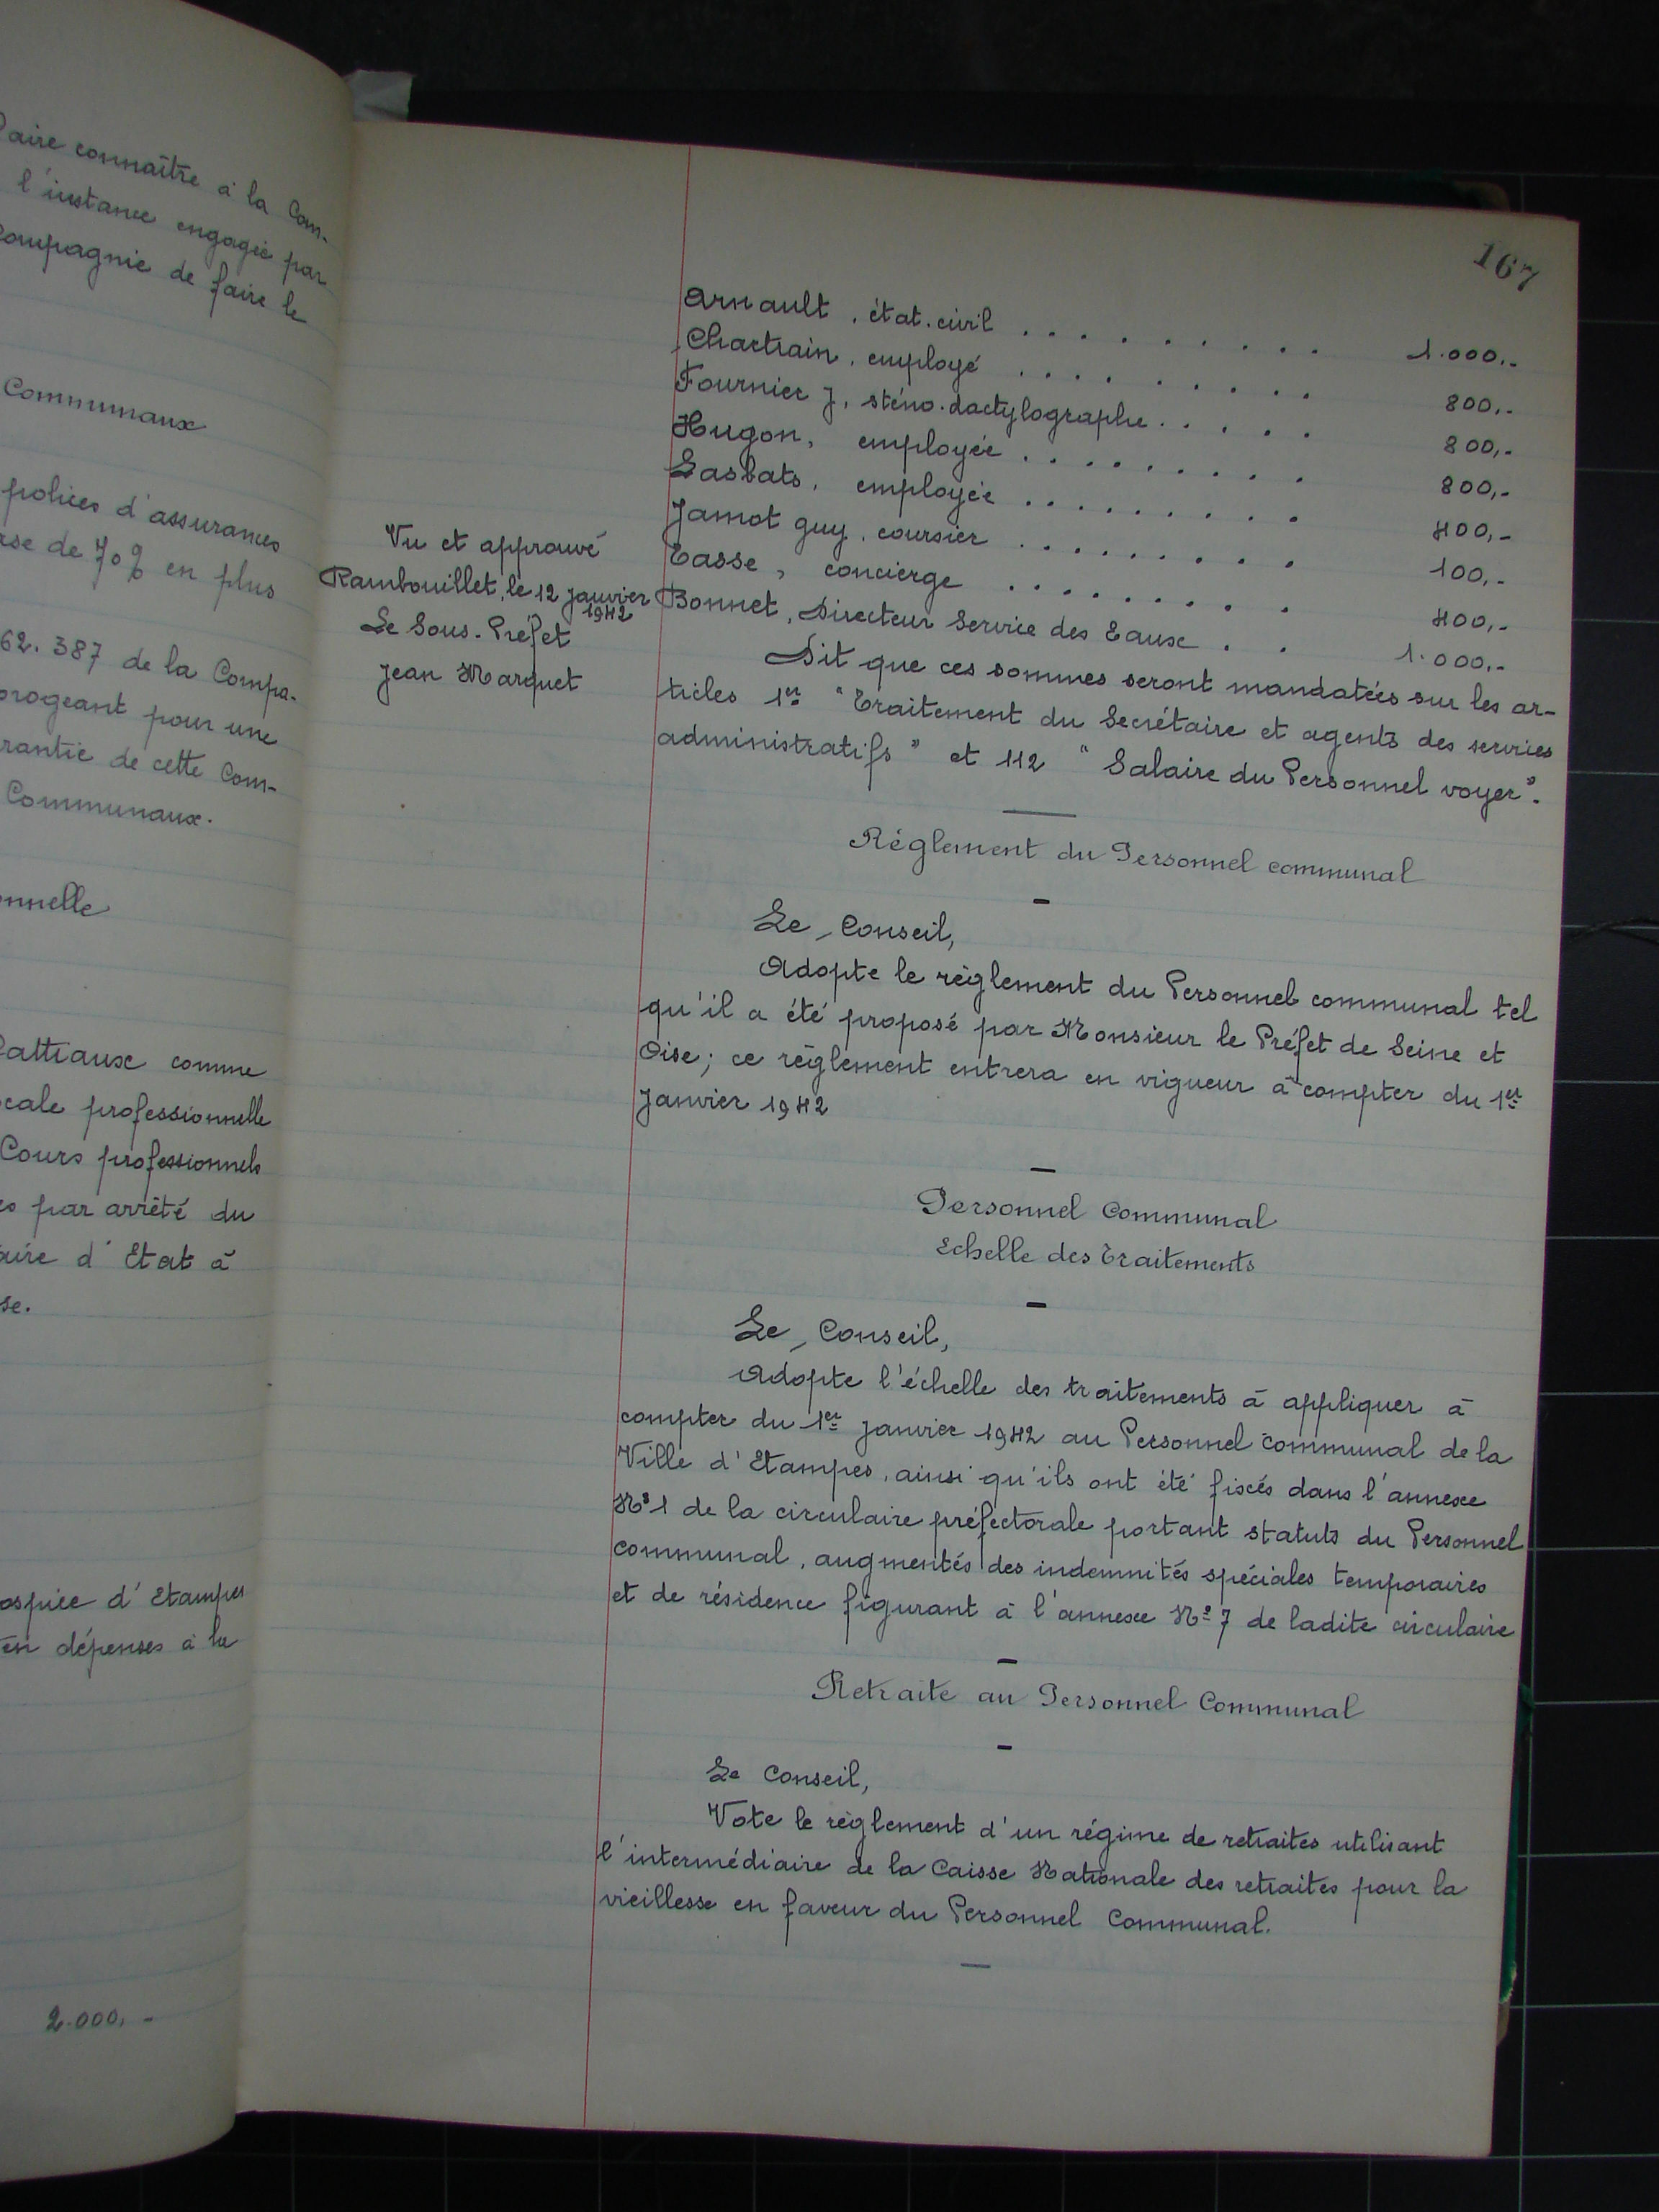 aire connaître à la Com-
l'instance engagée par
compagnie de faire le
Communaux
polices d'assurances
rse de 70% en plus
62.387 de la Compa-
rogeant pour une
rantie de cette Com-
Communaux.
onnelle
attiaux comme
cale professionnelle
Cours professionnels
es par arrêté du
aire d'Etat à
se.
ospice d'Etampes
en dépenses à la
2.000,-
167
Arnault, état-civil . . . . . . . . . . 1.000,-
Chartrain, employé . . . . . . . . . 800,-
Fournier J, sténo-dactylographe . . . . . 800,-
Hugon, employée . . . . . . . . . 800,-
Lasbats, employée . . . . . . . . . 400,-
Jamot guy, coursier . . . . . . . . . 100,-
Tasse, concierge . . . . . . . . . 400,-
Bonnet, Directeur Service des Eaux . . 1.000,-
Vu et approuvé
Rambouillet, le 12 janvier
1942
Le Sous-Préfet
Jean Marquet
Dit que ces sommes seront mandatées sur les ar-
ticles 1er "Traitement du Secrétaire et agents des services
administratifs" et 112 "Salaire du Personnel voyer".
Réglement du Personnel communal
Le Conseil,
Adopte le règlement du Personnel communal tel
qu'il a été proposé par Monsieur le Préfet de Seine et
Oise; ce règlement entrera en vigueur à compter du 1er
Janvier 1942
Personnel Communal
Echelle des Traitements
Le Conseil,
Adopte l'échelle des traitements à appliquer à
compter du 1er Janvier 1942 au Personnel communal de la
Ville d'Etampes, ainsi qu'ils ont été fixés dans l'annexe
N°1 de la circulaire préfectorale portant statuts du Personnel
communal, augmentés des indemnités spéciales temporaires
et de résidence figurant à l'annexe N° 7 de ladite circulaire
Retraite au Personnel Communal
Le Conseil,
Vote le règlement d'un régime de retraites utilisant
l'intermédiaire de la Caisse Nationale des retraites pour la
vieillesse en faveur du Personnel Communal.